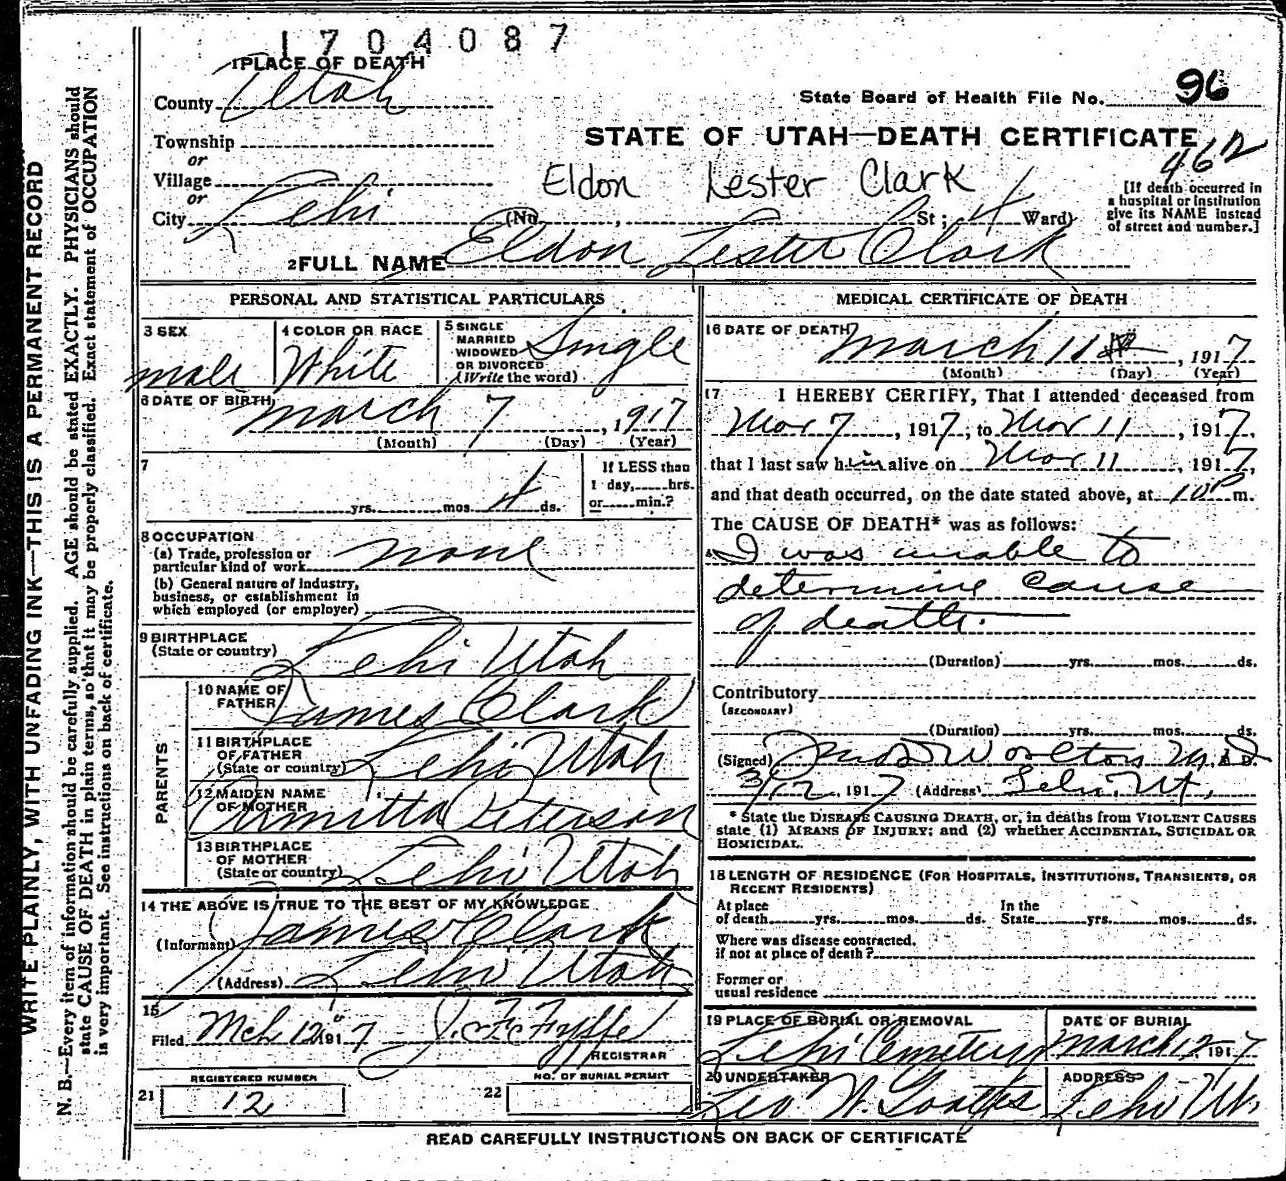 1704087
1 PLACE OF DEATH
County Utah
State Board of Health File No. 96
Township
or
STATE OF UTAH—DEATH CERTIFICATE
462
Village
or
Eldon Lester Clark
City Lehi (No. , St; 4 Ward)
[If death occurred in
a hospital or institution
give its NAME instead
of street and number.]
2 FULL NAME Eldon Lester Clark
PERSONAL AND STATISTICAL PARTICULARS
3 SEX
male
4 COLOR OR RACE
White
5 SINGLE
MARRIED
WIDOWED
OR DIVORCED
(Write the word)
Single
6 DATE OF BIRTH
March 7, 1917
(Month) (Day) (Year)
7
yrs. mos. 4 ds.
If LESS than
1 day, hrs.
or min.?
8 OCCUPATION
(a) Trade, profession or
particular kind of work none
(b) General nature of industry,
business, or establishment in
which employed (or employer)
9 BIRTHPLACE
(State or country) Lehi Utah
PARENTS
10 NAME OF
FATHER James Clark
11 BIRTHPLACE
OF FATHER
(State or country) Lehi Utah
12 MAIDEN NAME
OF MOTHER Armitta Peterson
13 BIRTHPLACE
OF MOTHER
(State or country) Lehi Utah
14 THE ABOVE IS TRUE TO THE BEST OF MY KNOWLEDGE
(Informant) James Clark
(Address) Lehi Utah
15
Filed Mch 12" 1917 J. F. Fyffe
REGISTRAR
REGISTERED NUMBER
21 12
NO. OF BURIAL PERMIT
22
MEDICAL CERTIFICATE OF DEATH
16 DATE OF DEATH
March 11, 1917
(Month) (Day) (Year)
17 I HEREBY CERTIFY, That I attended deceased from
Mar 7, 1917, to Mar 11, 1917,
that I last saw him alive on Mar 11, 1917,
and that death occurred, on the date stated above, at 10P m.
The CAUSE OF DEATH* was as follows:
I was unable to
determine cause
of death.
(Duration) yrs. mos. ds.
Contributory
(SECONDARY)
(Duration) yrs. mos. ds.
(Signed) Woolton M.D.
3/12 1917 (Address) Lehi. Ut.
* State the DISEASE CAUSING DEATH, or, in deaths from VIOLENT CAUSES
state (1) MEANS OF INJURY; and (2) whether ACCIDENTAL, SUICIDAL OR
HOMICIDAL.
18 LENGTH OF RESIDENCE (FOR HOSPITALS, INSTITUTIONS, TRANSIENTS, OR
RECENT RESIDENTS)
At place
of death yrs. mos. ds.
In the
State yrs. mos. ds.
Where was disease contracted.
if not at place of death?
Former or
usual residence
19 PLACE OF BURIAL OR REMOVAL
Lehi Cemetery
DATE OF BURIAL
March 12 1917
20 UNDERTAKER
Geo W. Goates
ADDRESS
Lehi Ut.
READ CAREFULLY INSTRUCTIONS ON BACK OF CERTIFICATE
WRITE PLAINLY, WITH UNFADING INK—THIS IS A PERMANENT RECORD
N. B.—Every item of information should be carefully supplied. AGE should be stated EXACTLY. PHYSICIANS should
state CAUSE OF DEATH in plain terms, so that it may be properly classified. Exact statement of OCCUPATION
is very important. See instructions on back of certificate.